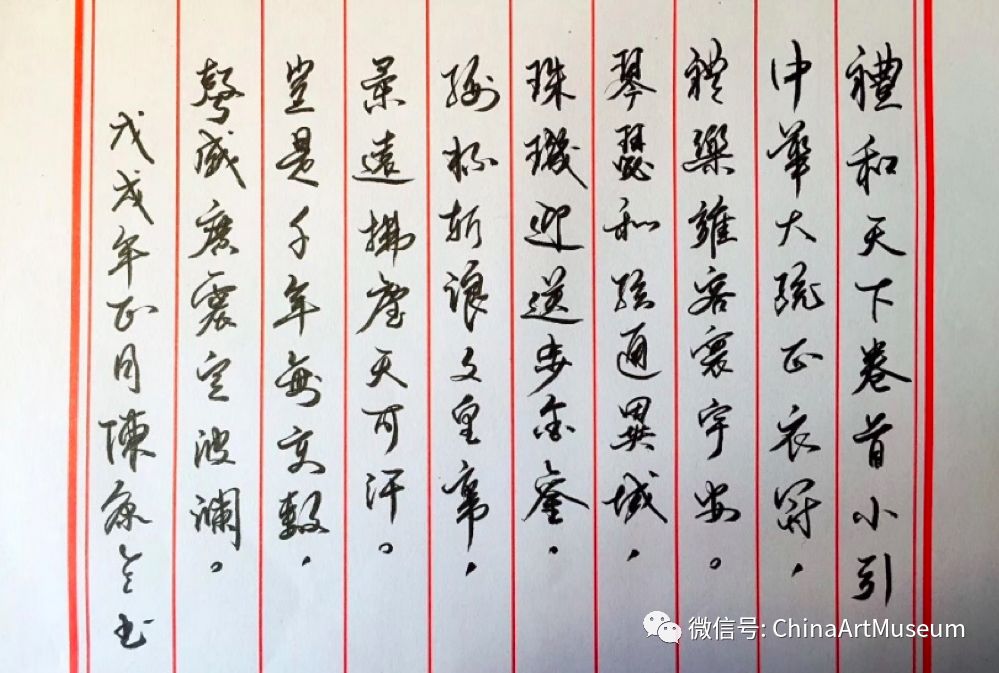 禮和天下卷首小引
中華大統正衣冠，
禮樂雍容寰宇安。
琴瑟和絃通異域，
珠璣迎送步金鑾。
斬浪文皇事，
遠塵天可汗。
豈是千年無變數，
聲威震定波瀾。
戊戌年正月陳書
微信号: ChinaArtMuseum